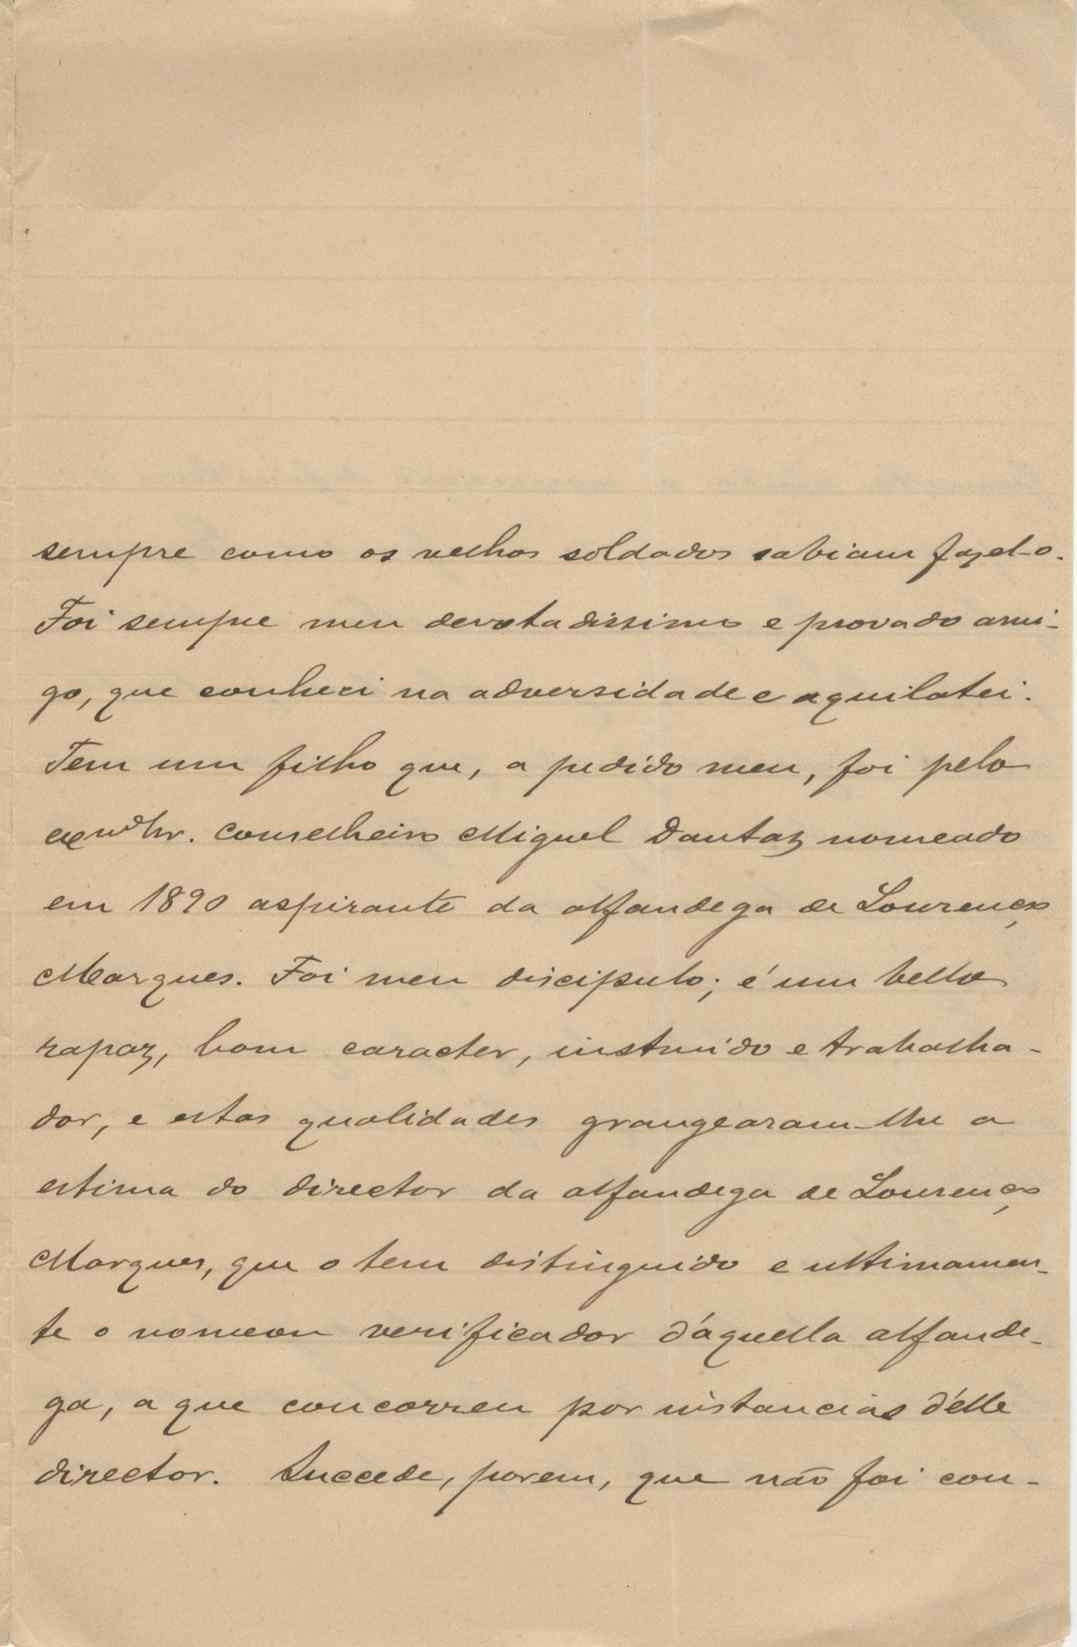 sempre como os velhos soldados sabiam fazel-o.
Foi sempre meu devotadissimo e provado ami-
go, que conheci na adversidade e aquilatei.
Tem um filho que, a pedido meu, foi pelo
exmo Snr. Conselheiro Miguel Dantas nomeado
em 1890 aspirante da alfandega de Lourenço
Marques. Foi meu discipulo; é um bello
rapaz, bom caracter, instruido e trabalha-
dor, e estas qualidades grangearam-lhe a
estima do director da alfandega de Lourenço
Marques, que o tem distinguido e ultimamen-
te o nomeou verificador d'aquella alfande-
ga, a que concorreu por instancias d'elle
director. Succede, porem, que não foi con-